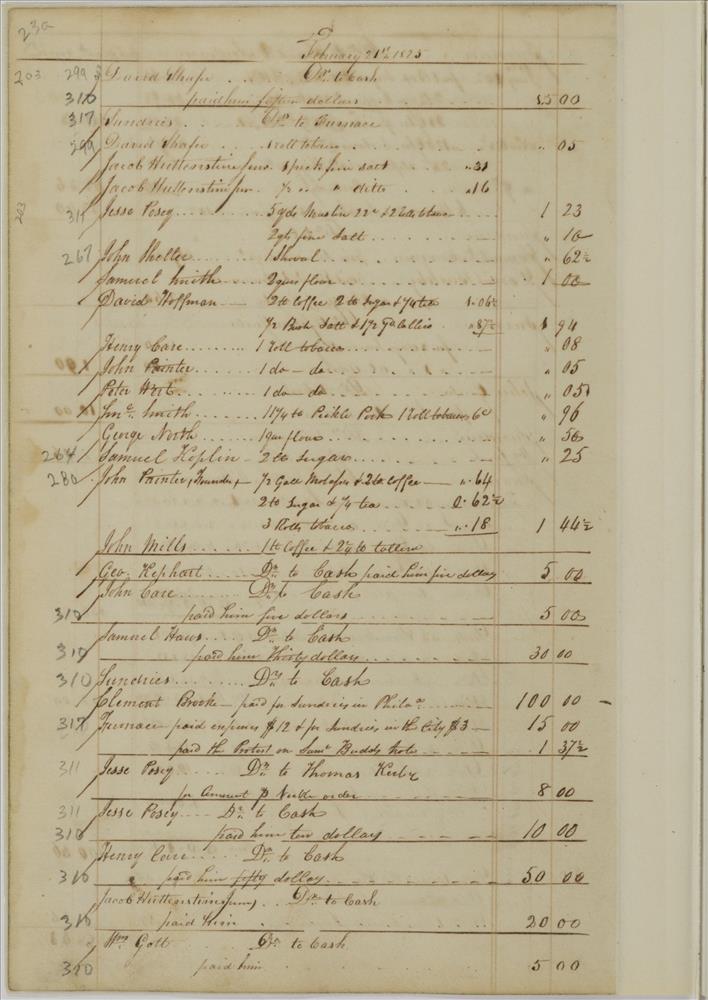 23a
February 21st 1825
203 299 David Shafer . . Dr. to Cash
310 paid him fifteen dollars 15 00
317 Sundries . . Drs to Furnace
299 David Shafer . . 1 roll tobacco " 05
Jacob Huttenstine Senr. 1 peck fine salt " 31
Jacob Huttenstine Junr. 1/2 " " ditto " 16
203 311 Jesse Posey 5 yds Muslin 22c & 2 rolls tobacco 1 23
2 qts fine Salt " 10
267 John Shelter 1 Shovel " 62½
Samuel Smith 2 qrs flour 1 00
David Hoffman 2 lb Coffee 2 lb Sugar & 1/4 tea 1.06½
1/2 Bush Salt & 1 1/2 yd Callico " 87½ 1 94
Henry Care 1 Roll tobacco " 08
John Painter 1 do - do " 05
Peter Hert 1 do - do " 05
Jno. Smith 11 1/4 lb Pickle Pork 1 Roll tobacco 6c " 96
George North 1 qr flour " 50
264 Samuel Heplin - 2 lb Sugar " 25
280 John Painter, Founder, 1/2 Gall Molasses & 2 lb Coffee " 64
2 lb Sugar & 1/4 tea 0.62½
3 Rolls tobacco " 18 1 44½
John Mills 1 lb Coffee & 2 1/4 lb tallow
Geo. Kephart Dr. to Cash paid him five dollars 5 00
John Care Dr. to Cash
310 paid him five dollars 5 00
Samuel Haws Dr. to Cash
310 paid him Thirty dollars 30 00
310 Sundries Drs to Cash
Clement Brooke - paid for Sundries in Phila. 100 00
317 Furnace - paid expenses $12 & for Sundries in the City $3 15 00
paid the Protest on Saml Budds Note 1 37½
311 Jesse Posey Dr. to Thomas Kirby
for Amount 8 00
311 Jesse Posey Dr. to Cash
310 paid him ten dollars 10 00
Henry Care Dr. to Cash
310 paid him fifty dollars 50 00
Jacob Huttenstine Junr, Dr. to Cash
310 paid him 20 00
Wm Gott Dr. to Cash
310 paid him 5 00